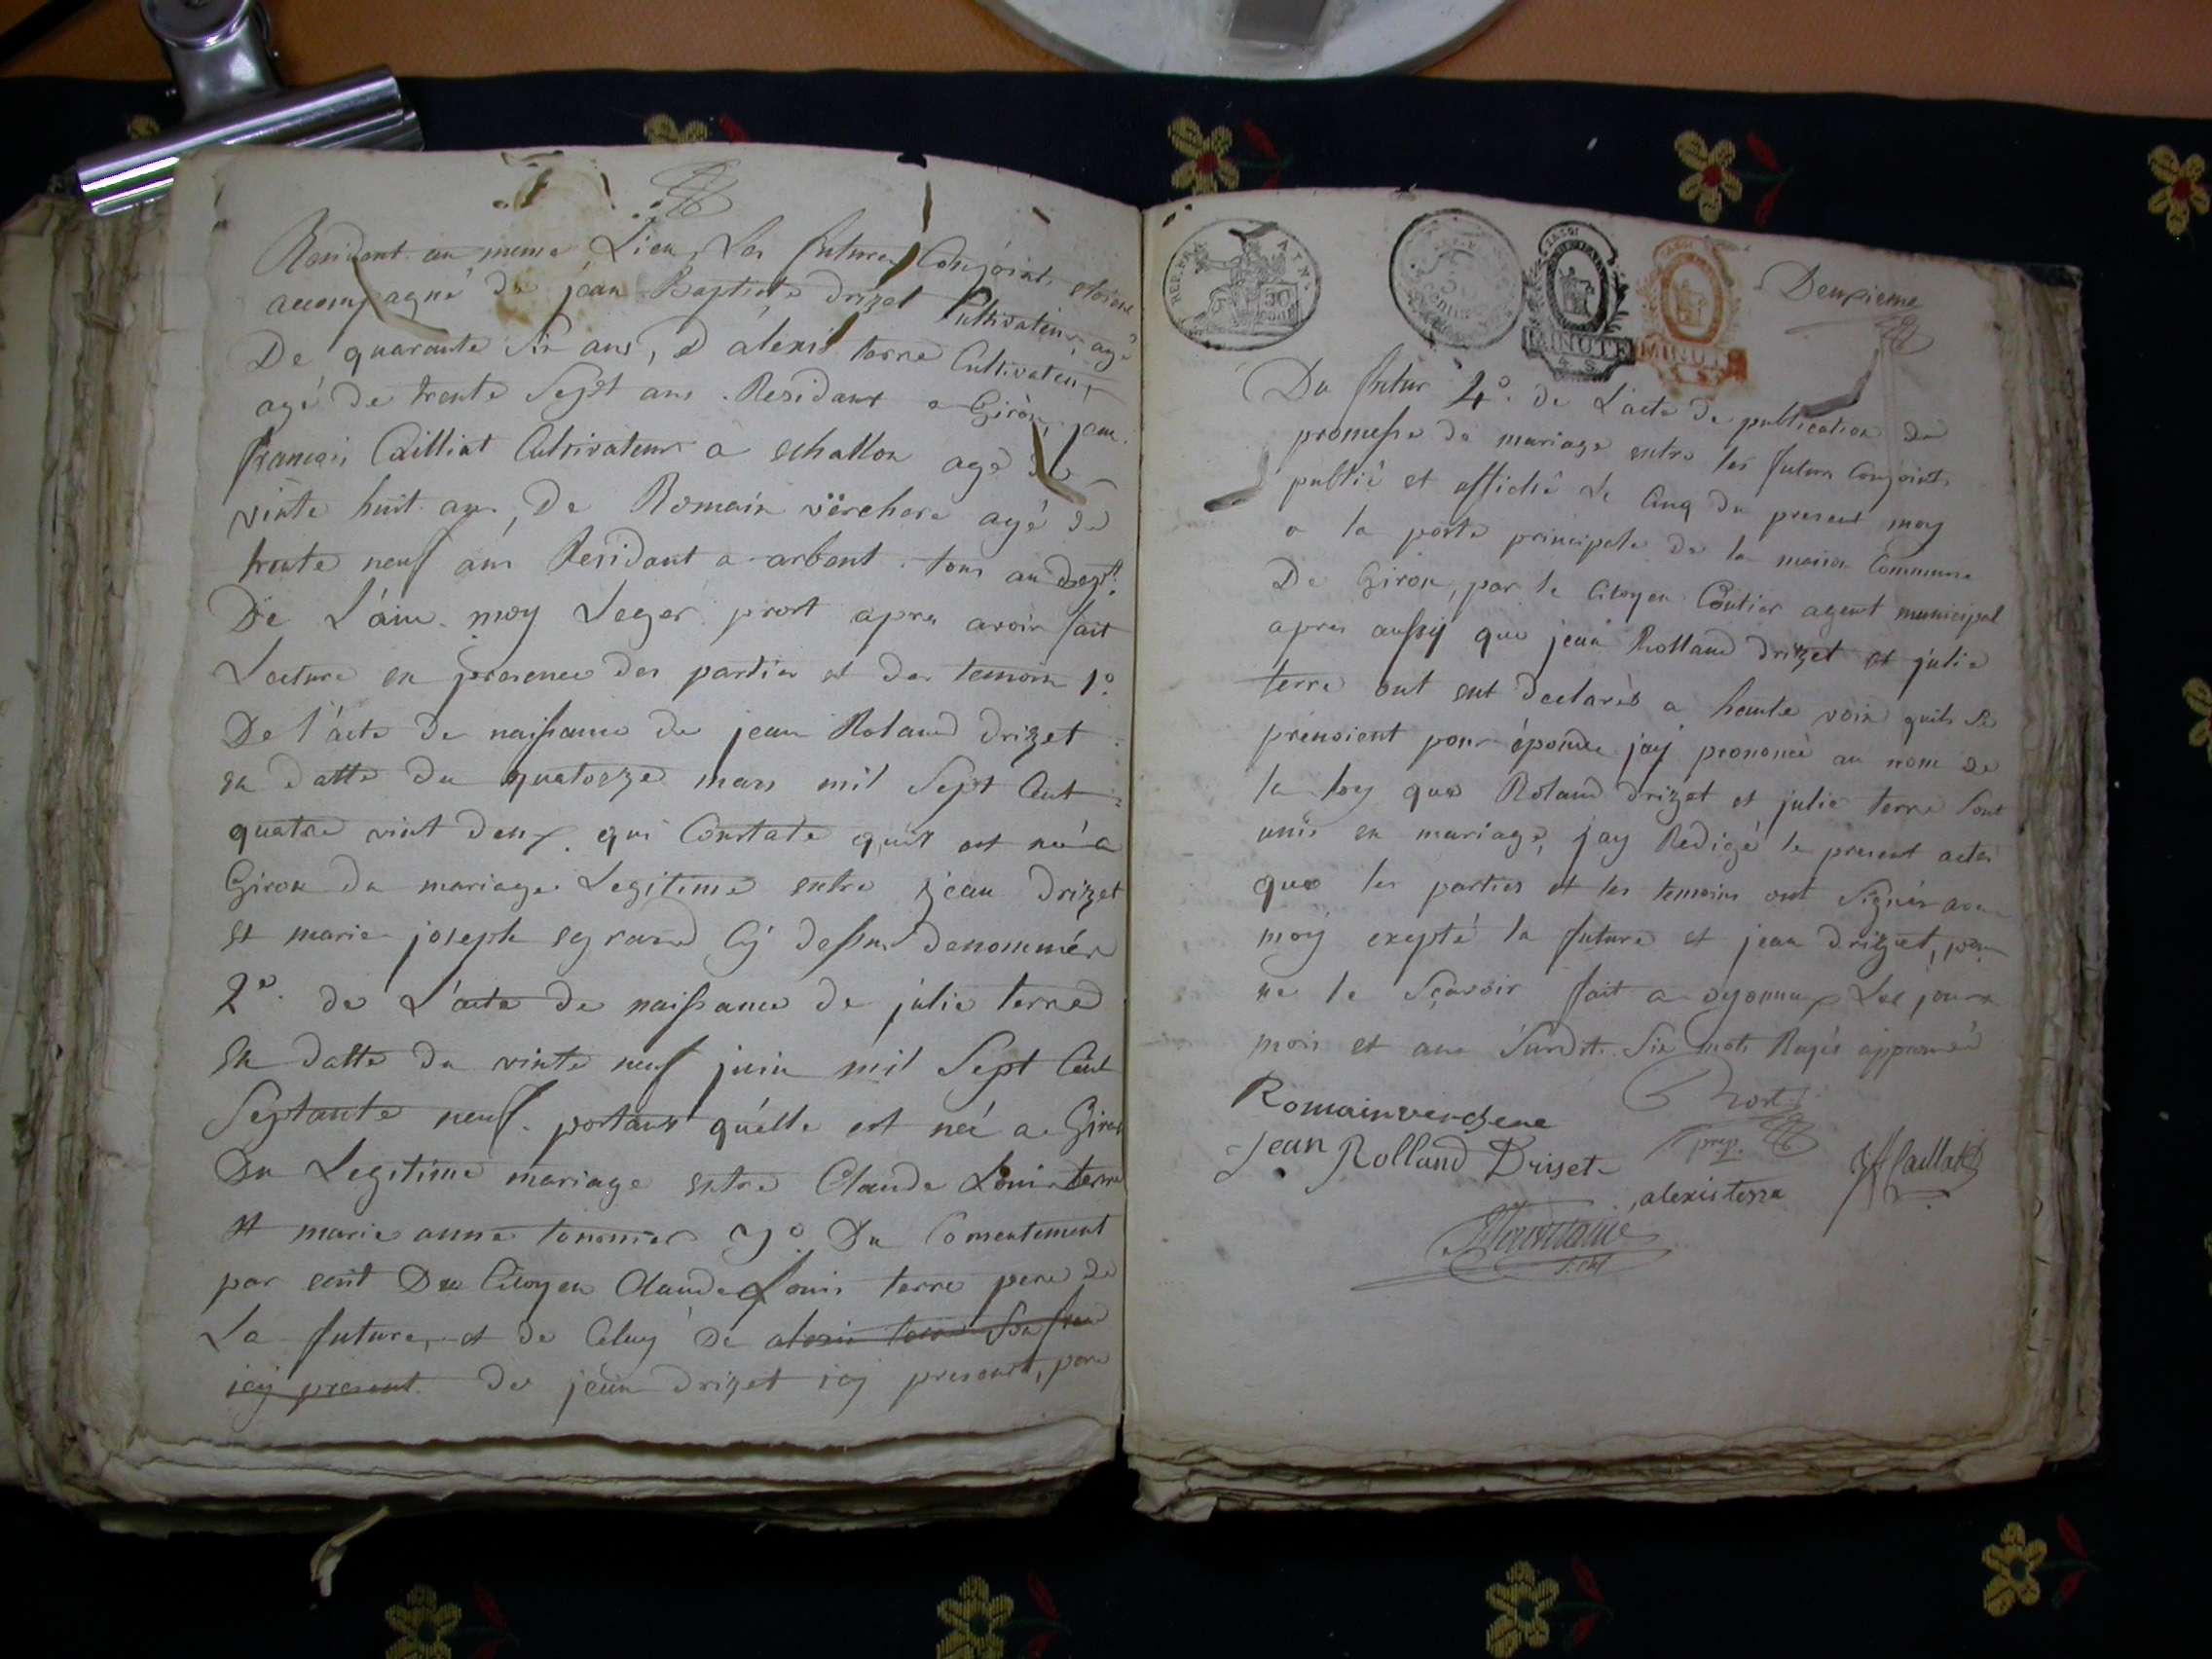 Residant au meme Lieu, Les futures Conjoints etoient
accompagné de jean Baptiste drizet Cultivateur, agé
De quarante Six ans, & alexis terre Cultivateur
agé de trente Sept ans. Residant a Giron, jean
francois Cailliat Cultivateur a echallon agé de
vinte huit ans, De Romain vërchere agé de
trente neuf ans Residant a arbent. tous au dept.
De L'ain. moy Leger prort apres avoir fait
Lecture en presence des parties et des temoin 1º.
De l'acte de naissance de jean Roland drizet
en datte du quatorze mars mil Sept Cent
quatre vint deux. qui Constate quil est né a
Giron du mariage Legitime entre jean drizet
et marie joseph egraud cy dessus denommés
2º. de L'acte de naissance de julie terre
En datte du vinte neuf juin mil Sept Cent
Septante neuf. portant qu'elle est née a Giron
Du Legitime mariage entre Claude Louis terre
et marie anne tournier 3º Du Consentement
par ecrit Du Citoyen Claude Louis terre pere de
La future, et de Celuy de alexis terre Son frere
icy present. de jean drizet icy present, pere
REP. FRA. 50 CENT.
MINUTE
MINUTE
Deuxieme
Du futur 4º. de L'acte de publication de
promesse de mariage entre les futurs Conjoints
publié et affiché le Cinq du present moy
a la porte principale de la maison Commune
De Giron, par le Citoyen Pontier agent municipal
apres aussy que jean Rolland drizet et julie
terre ont ent declarés a haute voix quils Se
prenoient pour épouder jay prononcé au nom de
la loy que Roland drizet et julie terre Sont
unis en mariage, jay Redigé le present actes
que les parties et les temoins ont Signés avec
moy exepté la future et jean drizet, pour
ne le Sçavoir fait a oyonnax Les jours
mois et an Susdit. Six mots Rayés approuvés
Romain verchere
Prort
prep.
Jean Rolland Driset
alexis terre
JF Caillat